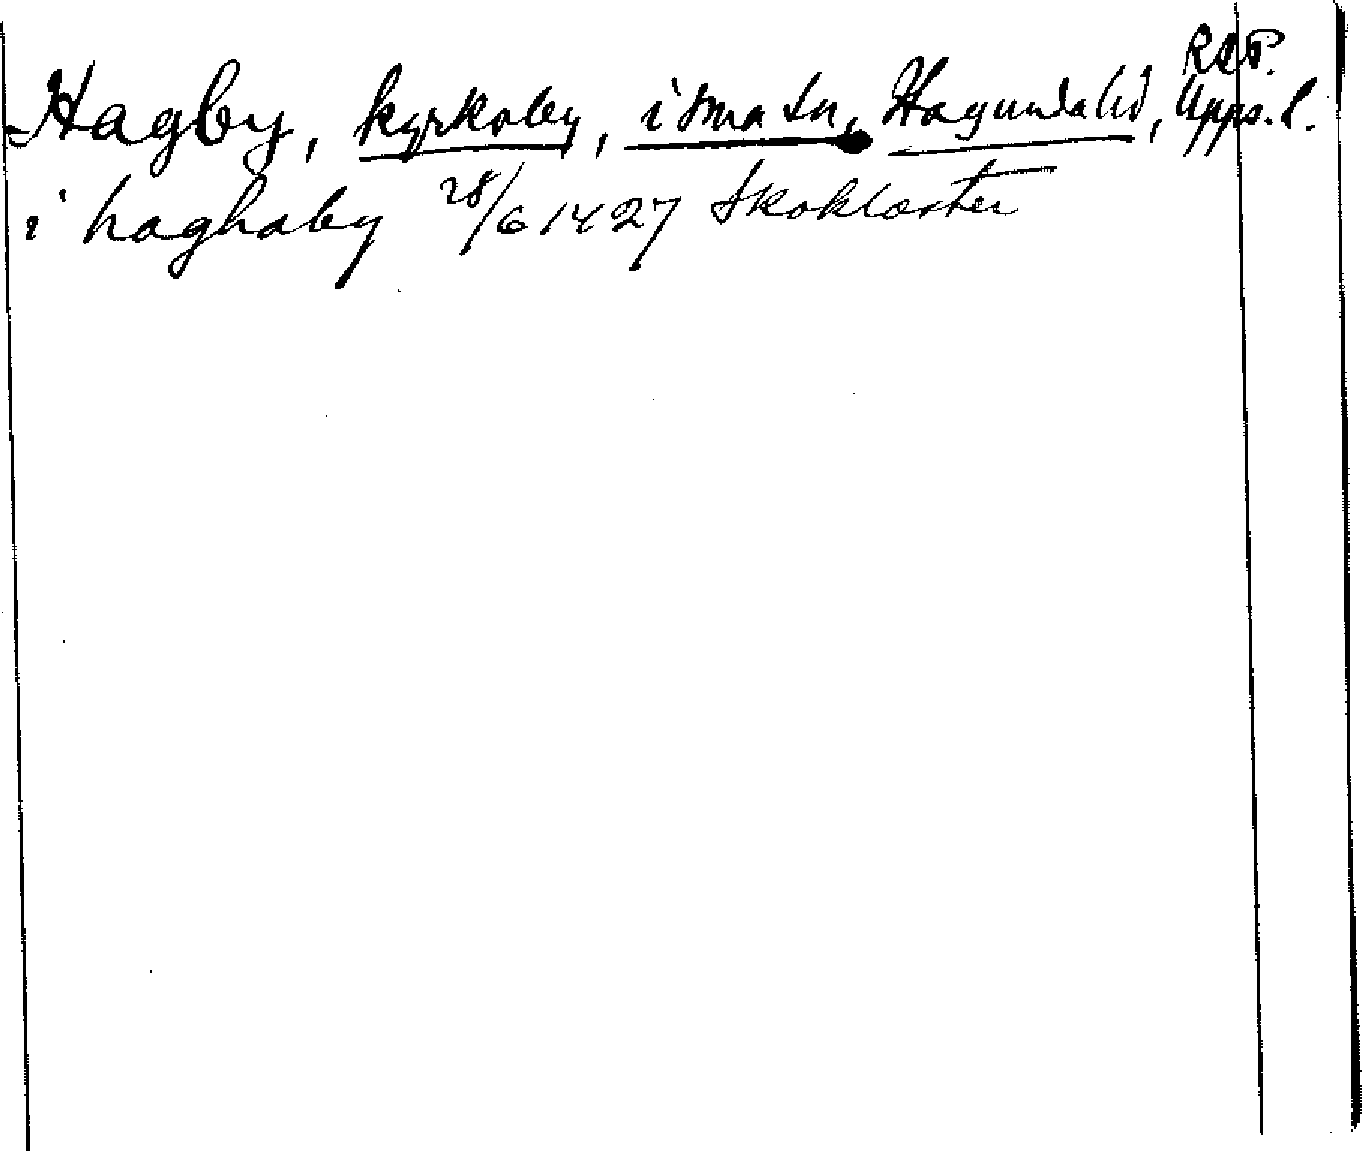 RAP.
Hagby, kyrkoby, i sma sn, Hagunda hd, Upps. l.
i haghaby 28/6 1427 Skokloster